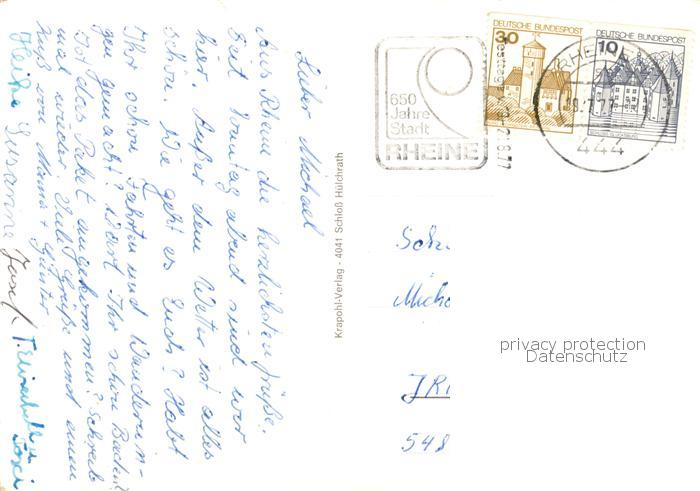 Lieber Michael
Aus Rheine die herzlichsten Grüße.
Seit Sonntag abend sind wir
hier. Außer dem Wetter ist alles
schön. Wie geht es Euch? Habt
Ihr schon Fahrten und Wanderun-
gen gemacht? Wart Ihr schon Baden?
Ist das Paket angekommen? Schreib
mal wieder. Viele Grüße und einen
Kuß von Mama + Günter
Heike Susanne Josef
Krapohl-Verlag - 4041 Schloß Hülchrath
650
Jahre
Stadt
RHEINE
DEUTSCHE BUNDESPOST
30
DEUTSCHE BUNDESPOST
10
RHEINE
444
Sch
Micha
548
privacy protection
Datenschutz